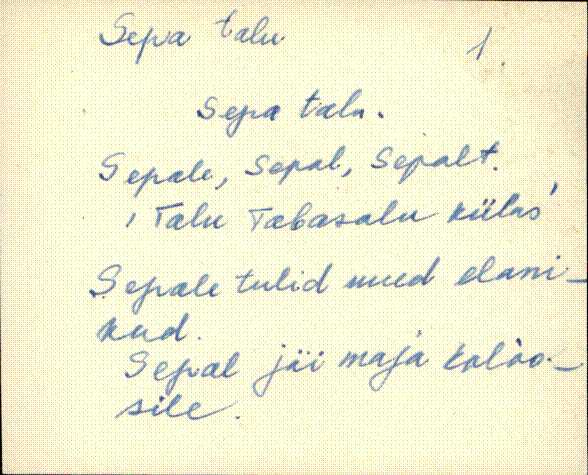 Sepa talu
1.
Sepa talu.
Sepale, Sepal, Sepalt.
' Talu Tabasalu külas'
Sepale tulid uued elani-
kud.
Sepal jäi maja kolhoo-
sile.